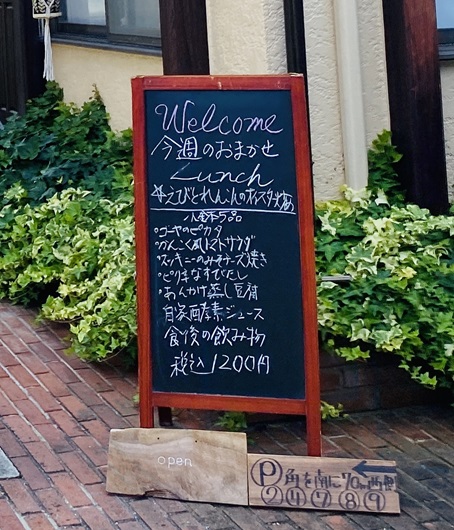 Welcome
今週のおまかせ
Lunch
☆えびとれんこんのオイスター炒め
小鉢5品
・ゴーヤのピカタ
・かんこく風トマトサラダ
・ズッキーニのみそチーズ焼き
・ピリ辛なすびたし
・あんかけ蒸し豆腐
自家製酵素ジュース
食後の飲み物
税込1200円
open
P 角を南に70m西側
②④⑦⑧⑨